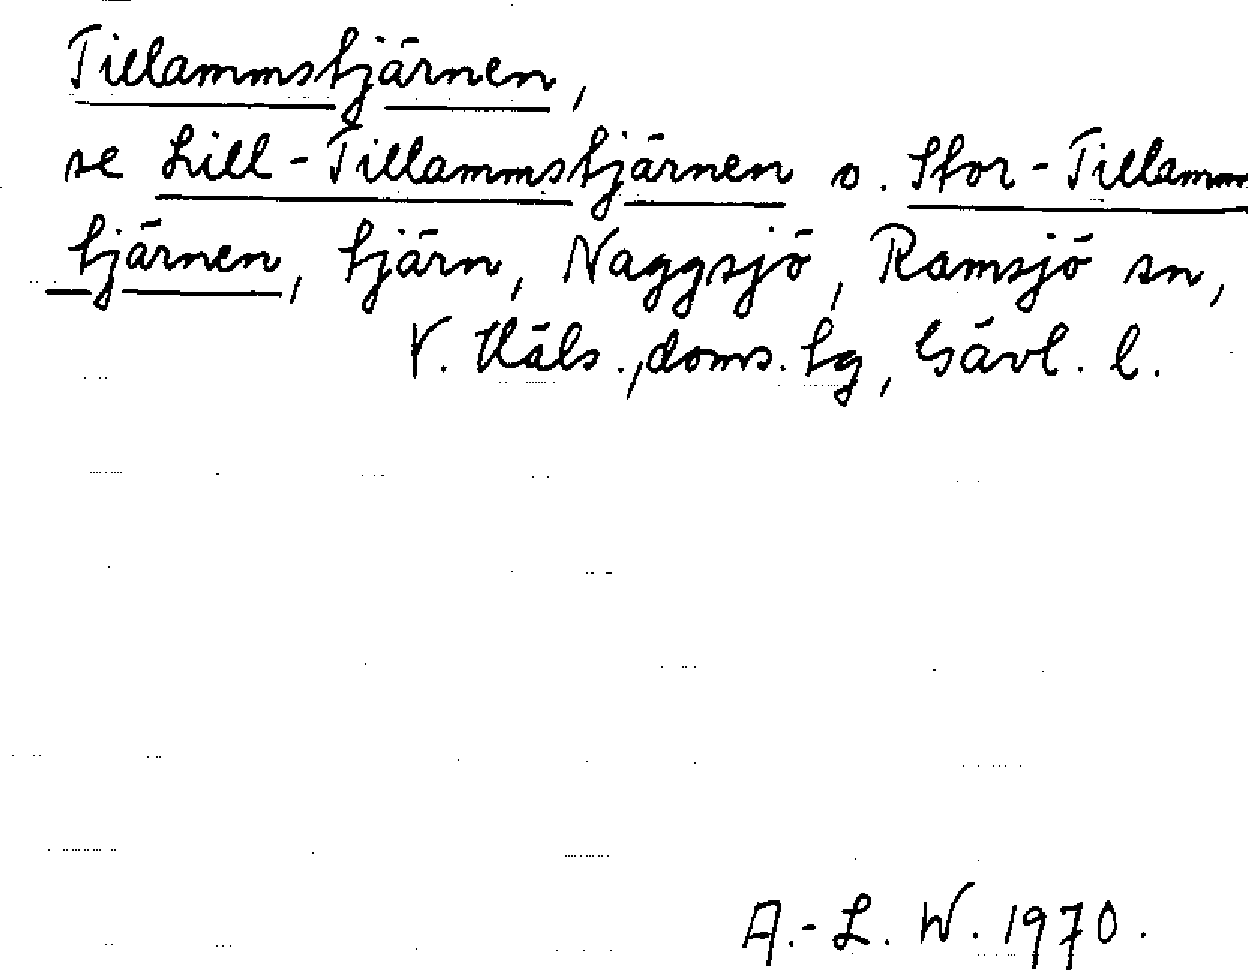 Tillammstjärnen,
se Lill-Tillammstjärnen o. Stor-Tillamm
tjärnen, tjärn, Naggsjö, Ramsjö sn,
V. Häls., doms. tg, Gävl. l.
A.-L. W. 1970.